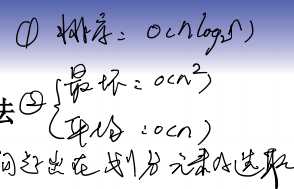 ① 排序：O(nlog₂n)
法②{最坏：O(n²)
平均：O(n)
问题出在划分元素的选取